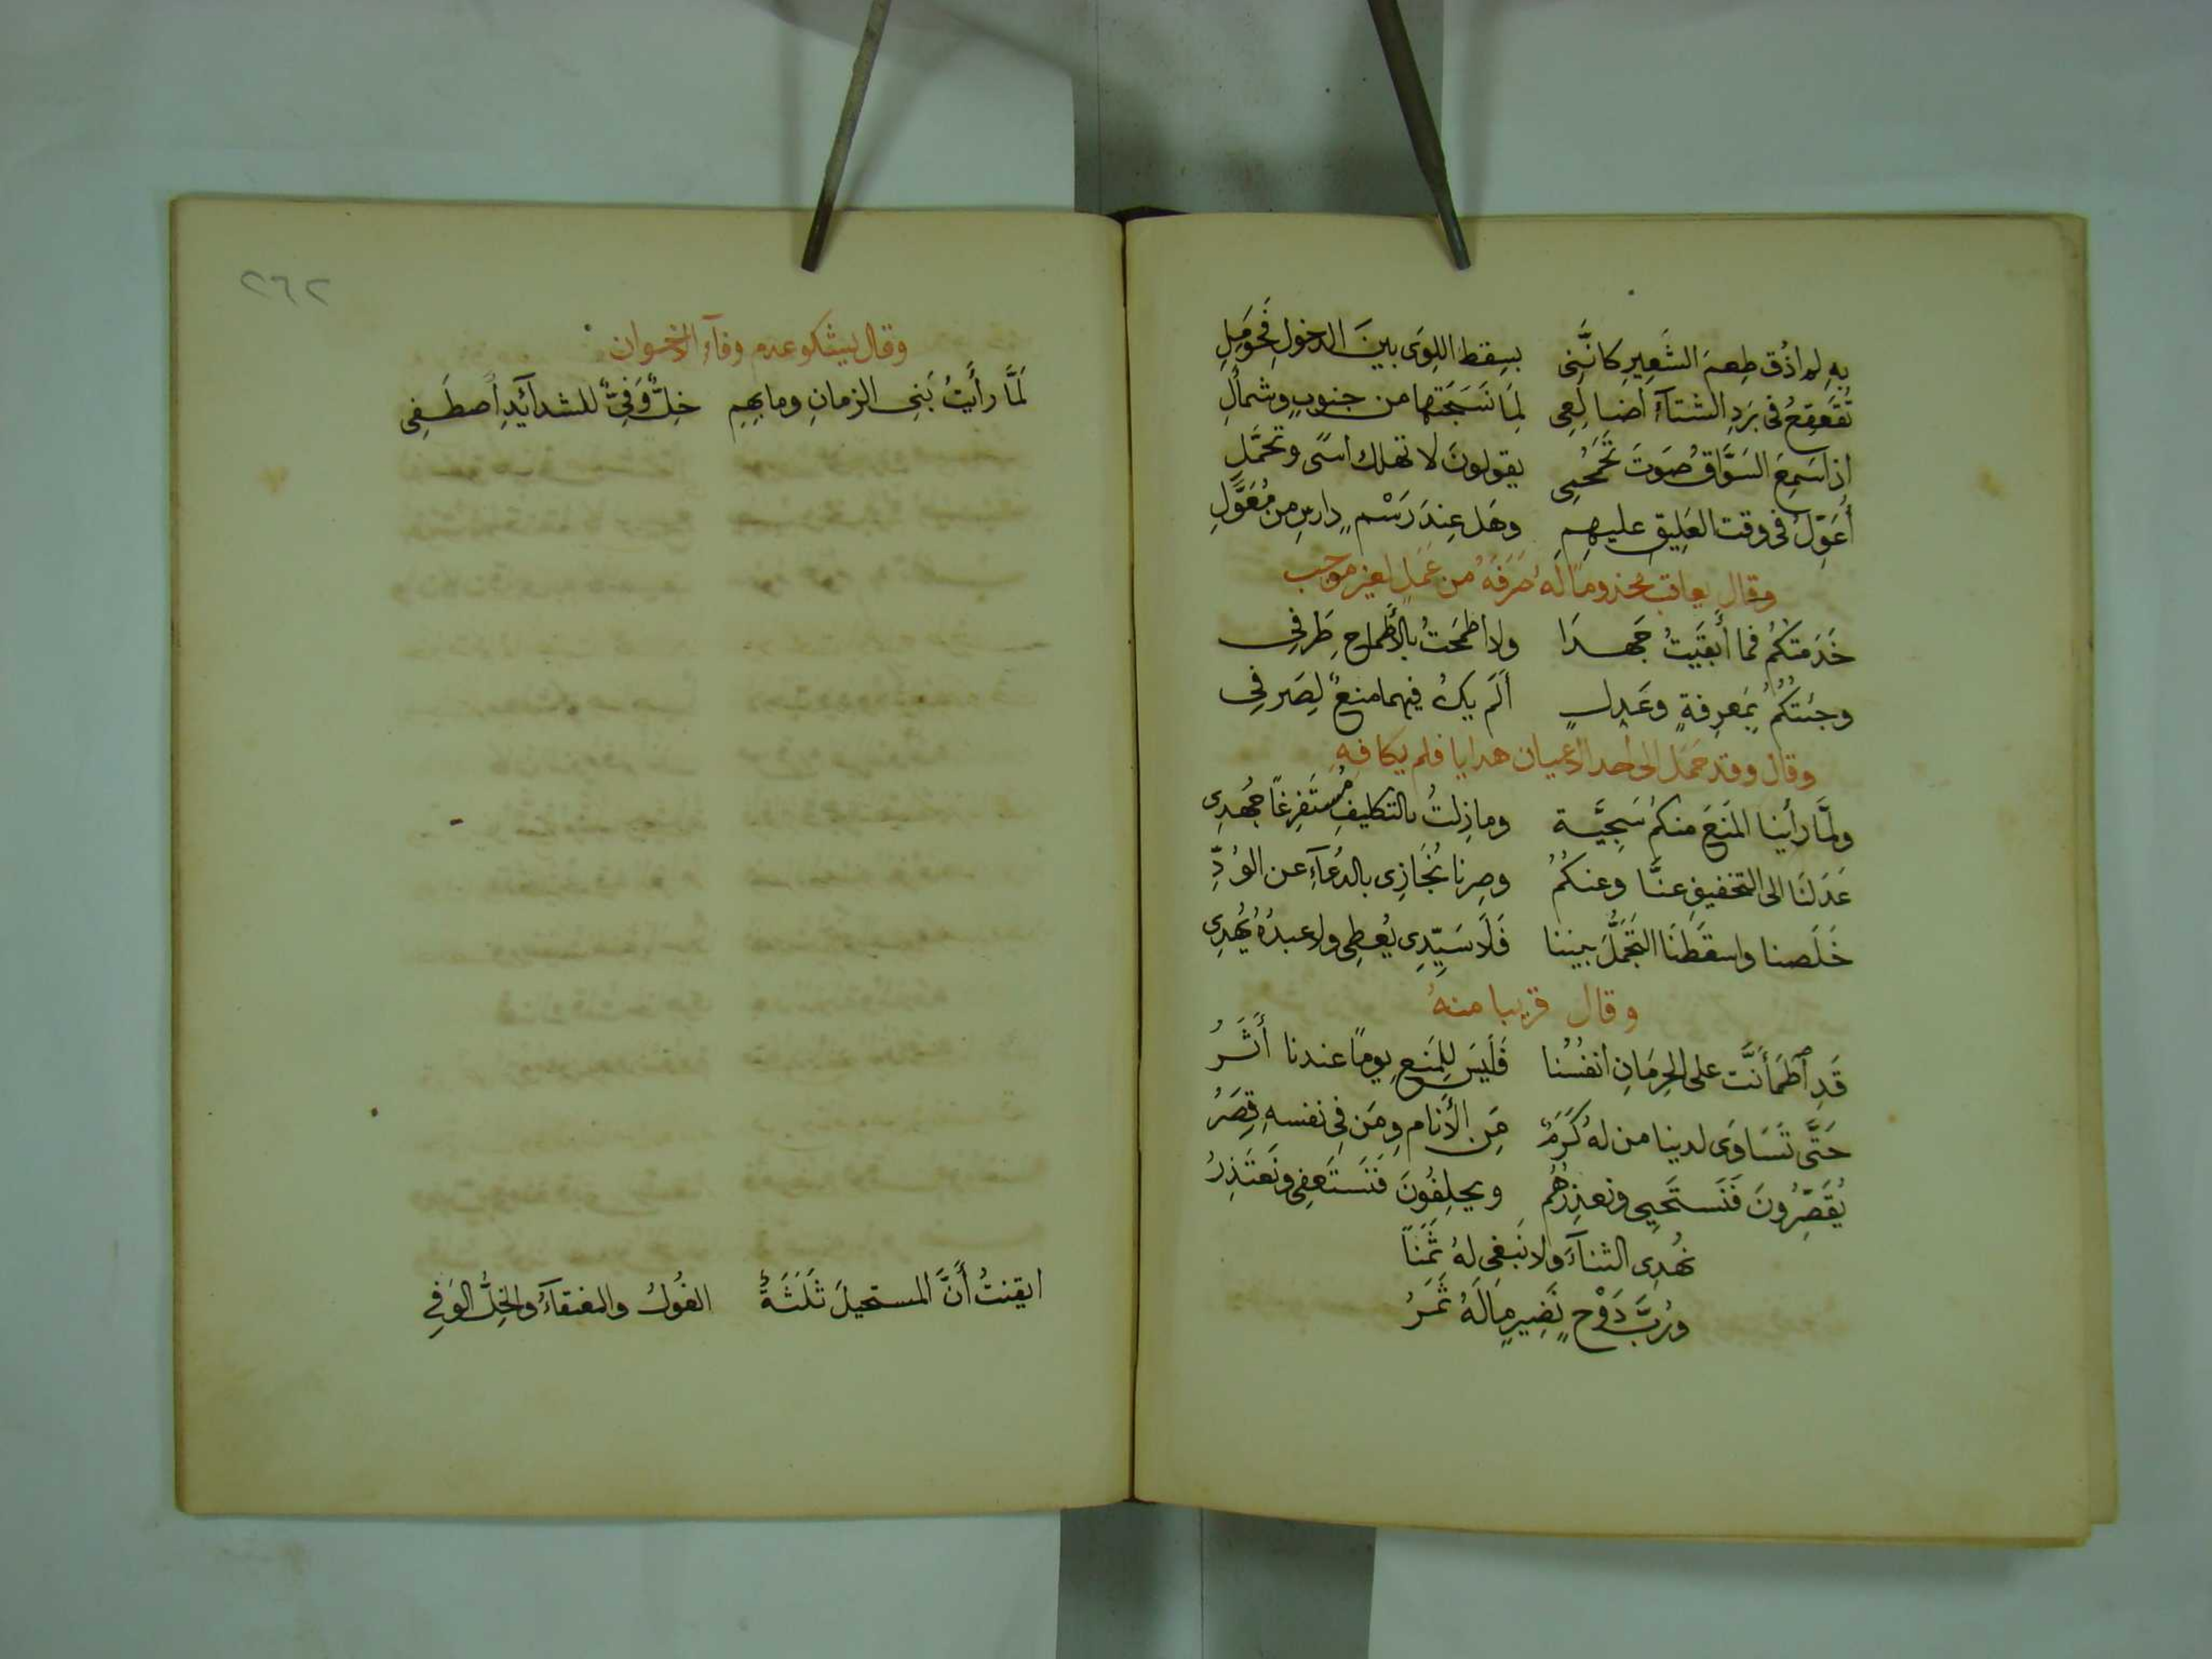 بِهِ لم اذُق طِعمَ الشَعِيرِ كانَّنِى بسِقط اللِوَى بينَ الدخولِ فَحَومَلِ
تُقَعقِعُ فى بَردِ الشتآءِ اضَالِعِى لِمَا نَسَجَتها من جنوبٍ وشمأَلِ
اذا سَمِعَ السَوَّاقُ صَوتَ تَحَمحُمِى يقولونَ لا تهلك اسًى وتحَمَّلِ
أُعَوِّلُ فى وقت العَلِيقِ عليهِمِ وهَل عِندَ رَسْمٍ دارسٍ من مُعَوَّلِ
وقال يعاتب مخذوماً لهُ صَرَفَهُ من عَمَلٍ لغيرِ موجب
خَدَمتكُمُ فما أَبقَيتُ جَهدَا ولا طمَحَتْ بالأَطماحِ طَرفِى
وجئتكُمُ بمَعرِفةٍ وعَدلٍ أَلَم يكُ فيهما منعٌ لِصَرفِى
وقال وقد حَمَل الى احد الاعيان هدايا فلم يكافِهِ
ولمَّا رأينا المَنعَ منكم سَجِيَّة وما زِلتُ بالتكليفِ مُستَفرِغاً جُهدِى
عَدَلنَا الى التخفيفِ عنَّا وعنكُمُ وصِرنا نُجَازِى بالدُعآءِ عن الوُدِّ
خَلَصنا واسقَطنَا التَجَمُّلَ بيننا فَلَا سَيِّدِى يُعطِى ولا عبدُهُ يُهدِى
وقال قريبا منهُ
قَدِ ٱطمَأَنَّت على الحِرمَانِ انفُسُنا فَلَيسَ لِلمَنعِ يوماً عندنا أَثَرُ
حَتَّى تَسَاوَى لدينا من لهُ كَرَمٌ مِن الأَنامِ ومَن فِى نفسهِ قِصَرُ
يُقَصِّرُونَ فَنَستَحيِى ونعذِرُهُم ويحلِفُونَ فَنَستَعفِى ونَعتَذِرُ
نُهدِى الثنآءَ ولا نَبغِى لهُ ثَمَناً
ورُبَّ دَوْحٍ نَضِيرٍ مَا لَهُ ثَمَرُ
٢٦٢
وقال يشكو عدم وفآءِ الاخوان
لَمَّا رأَيتُ بَنِى الزمانِ وما بهِمِ خِلٌّ وَفِىٌّ للشدآئدِ أَصطَفِى
ايقنتُ أَنَّ المستحيلَ ثَلَثَةٌ الغُولُ والعنقآءُ والخِلُّ الوَفِى